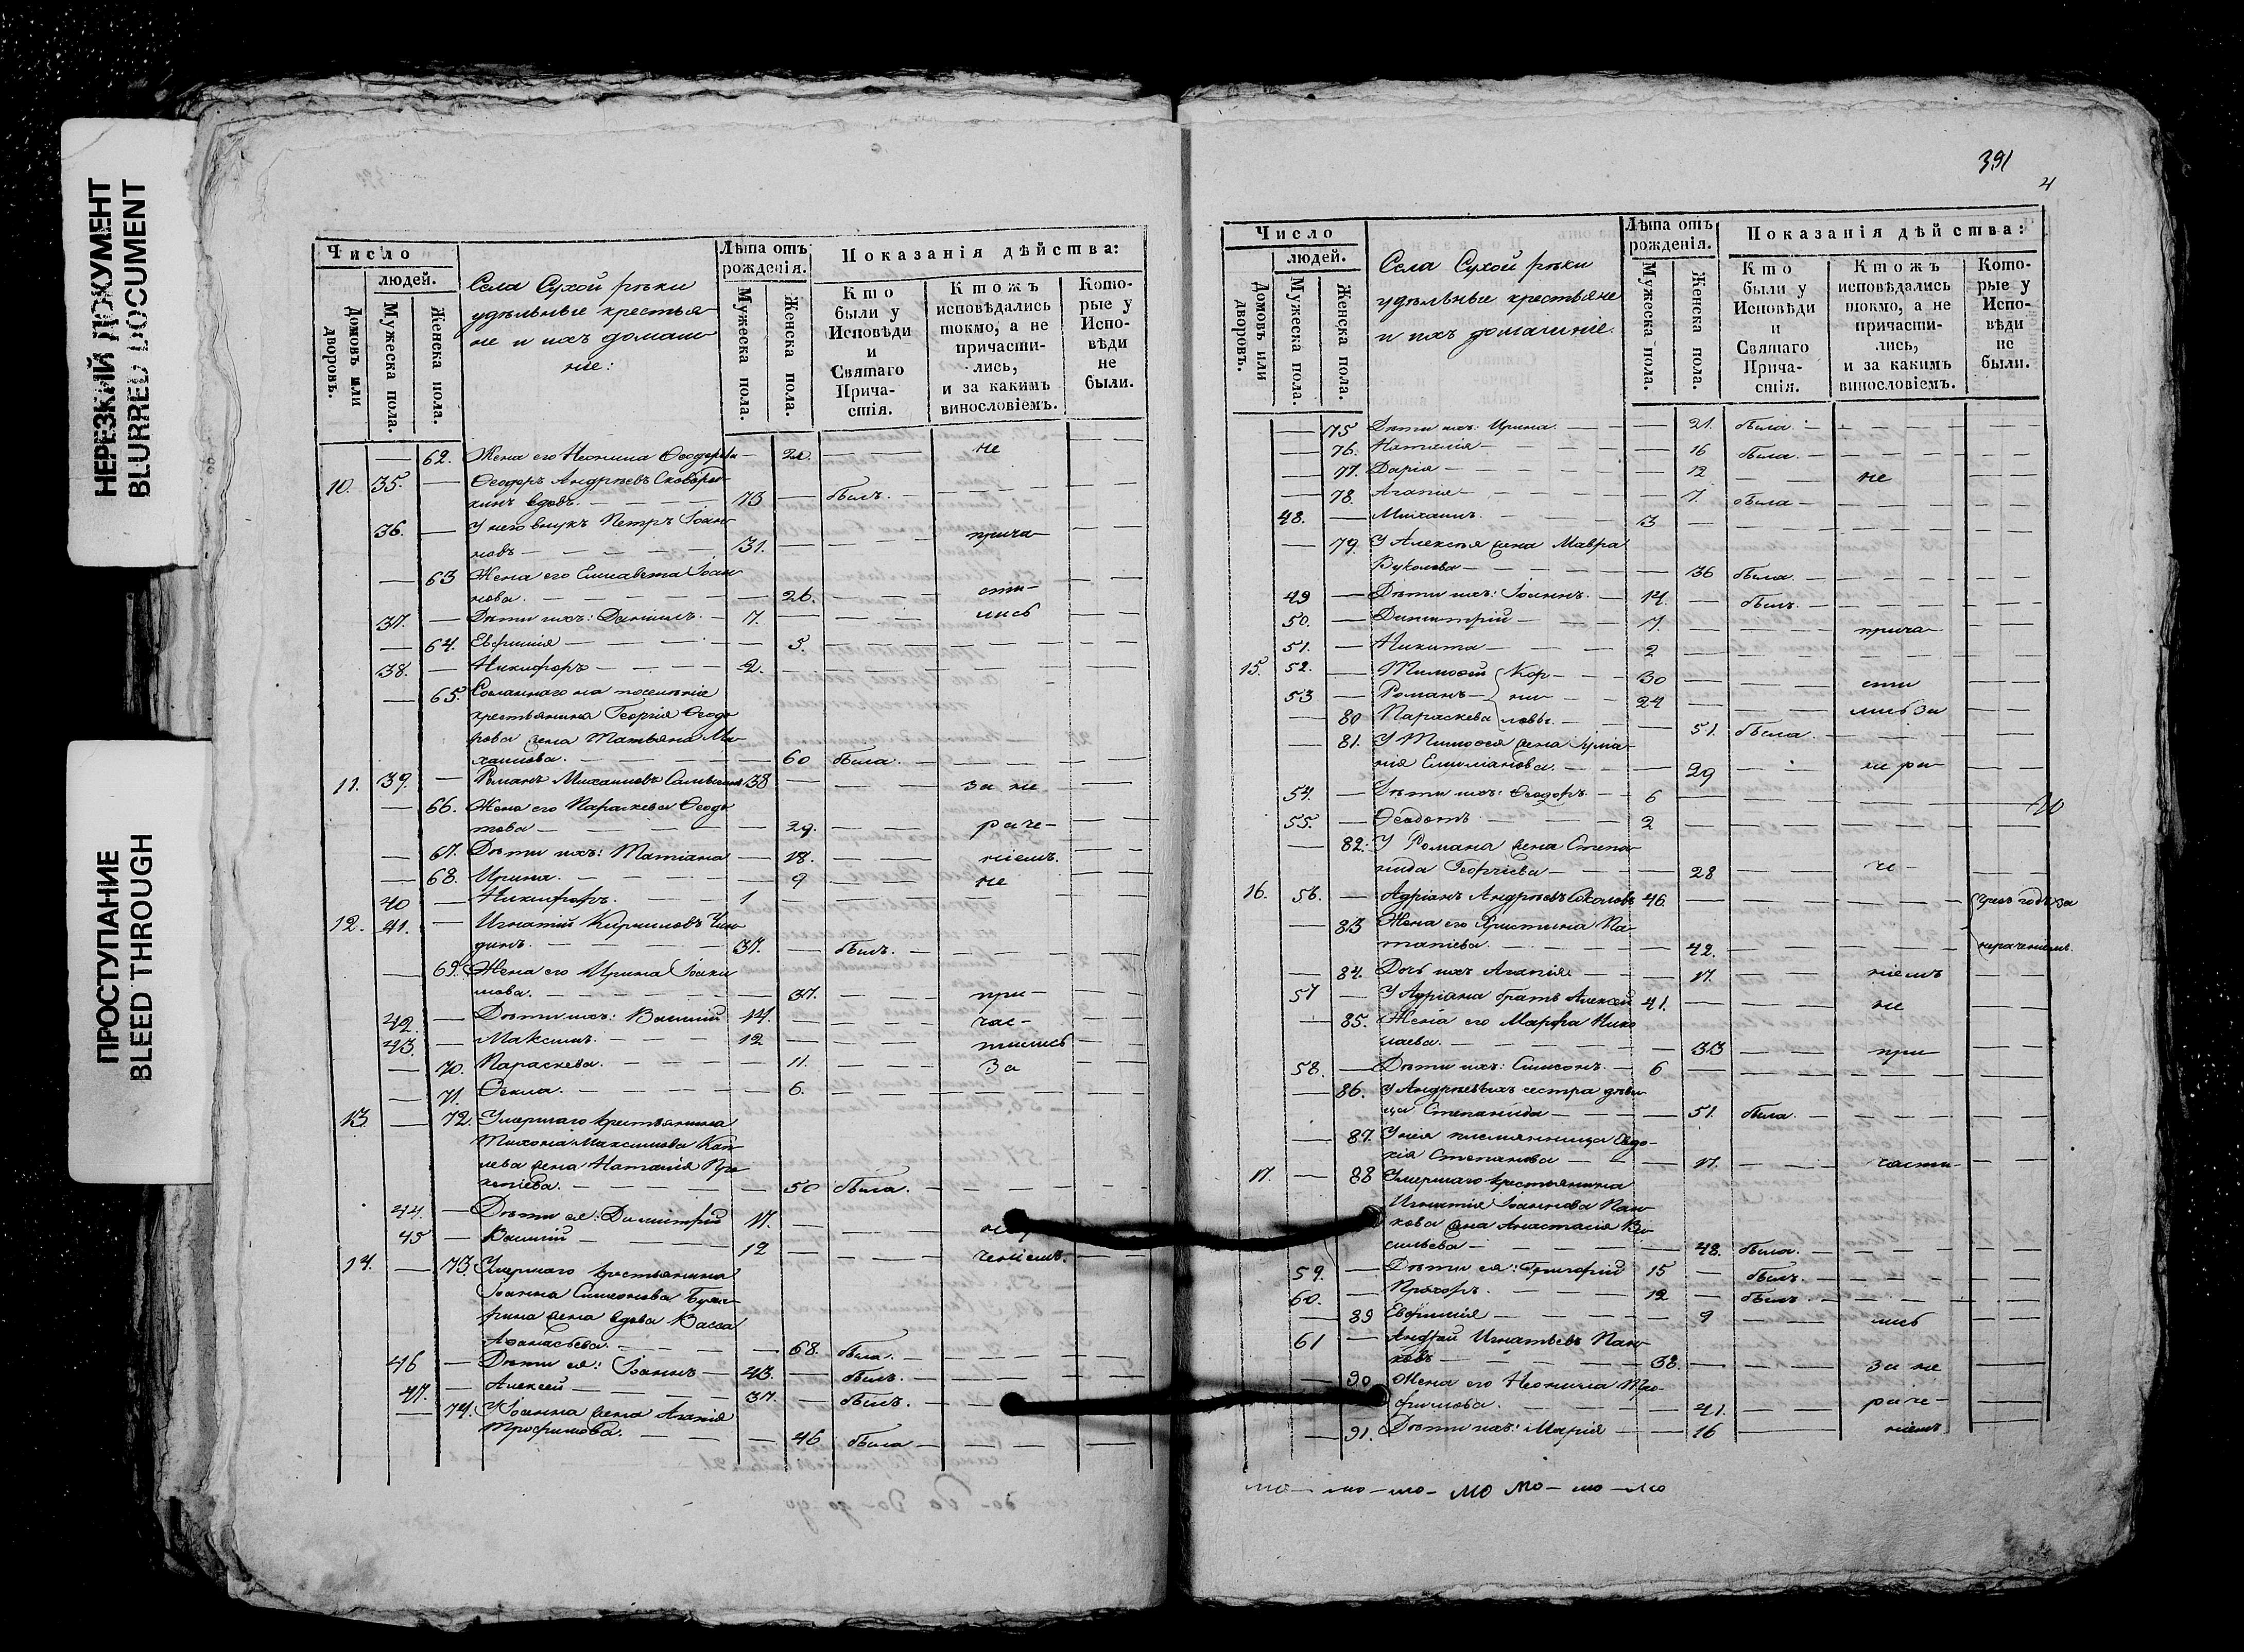 НЕРЕЗКИЙ ДОКУМЕНТ
BLURRED DOCUMENT
ПРОСТУПАНИЕ
BLEED THROUGH
Число
людей.
Домовъ или дворовъ.
Мужеска пола.
Женска пола.
Села Сухой рѣки
удѣльные крестья
не и ихъ домаш
ніе:
Лѣта отъ рожденія.
Мужеска пола.
Женска пола.
Показанія дѣйства:
Кто были у Исповѣди и Святаго Причастія.
Ктожъ исповѣдались токмо, а не причастились, и за какимъ винословіемъ.
Которые у Исповѣди не были.
— 62. Жена его Неонила Ѳеодорова — 20. — — не — —
10. 35. — Ѳеодоръ Андрѣевъ
кинъ вдовъ. — 73 — былъ. — — —
36. — У него внукъ Петръ Іоан
новъ — — — 31. — — — прича — —
— 63 Жена его Елисавета Іоан
нова. — — — 26. — — — сти — —
37. — Дѣти ихъ: Даніилъ. — 7. — — — лись — —
— 64. Евфимія — — — 5. — — —
38. — Никифоръ — — — 2. — — —
— 65. Сосланнаго на поселеніе
крестьянина Георгія Ѳеодо
рова жена Татьяна Ми
хаилова. — — — 60 была. — — —
11. 39. — Романъ Михаиловъ 38 — — — за не — —
— 66. Жена его Параскева Ѳеодо
това — — — 29. — — раче — —
— 67. Дѣти ихъ: Татіана — 18. — — ніемъ. — —
— 68. Ирина. — — — 9 — — не — —
40 — Никифоръ. — — 1 — — —
12. 41. — Игнатій Кириловъ Чин
динъ. — — — 37. — былъ. — — —
— 69. Жена его Ирина Іоаки
мова. — — — 37. — — при — —
42. — Дѣти ихъ: Василій 14. — — час — —
43. — Максимъ. — — — 12 — — тились — —
— 70. Параскева. — — — 11. — — За — —
— 71. Ѳекла. — — — 6. — — —
13. — 72. Умершаго крестьянина
Тихона Максимова
жена Наталія Про
копіева. — — — 50 была. — — —
44. — Дѣти ея: Димитрій 17. — — —
45 — Василій — — — 12 — — ченіемъ. — —
14. — 73. Умершаго крестьянина
Іоанна Симеонова
рина жена вдова Васса
Аѳанасьева. — — — 68. была. — — —
46 — Дѣти ея: Іоаннъ — 43. — былъ. — — —
47. — Алексей — — — 37. — былъ. — — —
— 74. У Іоанна жена Агапія
Трофимова. — — — 46 была — — —
391
4
Число
людей.
Домовъ или дворовъ.
Мужеска пола.
Женска пола.
Села Сухой рѣки
удѣльные крестьяне
и ихъ домашніе.
Лѣта отъ рожденія.
Мужеска пола.
Женска пола.
Показанія дѣйства:
Кто были у Исповѣди и Святаго Причастія.
Ктожъ исповѣдались токмо, а не причастились, и за какимъ винословіемъ.
Которые у Исповѣди не были.
— 75 Дѣти ихъ: Ирина. — — 21. была. — — —
— 76. Наталія — — — 16 была. — — —
— 77. Дарія — — — 12 — — не — —
— 78. Агапія — — — 7. была — — —
48. — Михаилъ. — — — 3 — — —
— 79. У Алексѣя жена Мавра
Вуколова — — — 36 была. — — —
49 — Дѣти ихъ: Іоаннъ. — 14. — былъ. — — —
50. — Димитрій — — — 7. — — прича — —
51. — Никита — — — 2 — — —
15. 52. — Тимоѳей Кор — — 30 — — сти — —
53 — Романъ — ни — — 24 — — лись за — —
— 80 Параскева ловы. — — 51. была. — — —
— 81. У Тимоѳея жена Іулiа
нія Емиліанова. — — — 29 — — не ра — —
54. — Дѣти ихъ: Ѳеодоръ. — 6 — — —
55. — Ѳеодотъ — — — 2 — — —
— 82. У Романа жена Степа
нида Георгіева — — — 28 — — че — —
16. 56. — Адріанъ Андреевъ Соколовъ 46. — — — чрезъ годъ за
— 83 Жена его Христина Па
тапіева. — — — 42. — — — нераченіемъ.
— 84. Дочь ихъ Агапія. — — 17. — — ніемъ — —
57 — У Адріана братъ Алексей 41. — — не — —
— 85. Жена его Марфа Нико
лаева. — — — 33 — — при — —
58. — Дѣти ихъ: Симеонъ. — 6 — — —
— 86. У Андреевыхъ сестра дѣви
ца Степанида — — — 51. была. — — —
— 87. У нея племянница Евдо
кія Степанова — — — 17. — — части — —
17. — 88 Умершаго крестьянина
Игнатія Іоаннова Пан
кова жена Анастасія Ва
сильева — — — 48. была. — — —
59. — Дѣти ея: Григорій 15 — былъ. — — —
60. — Прохоръ. — — — 12 — былъ. — — —
— 89 Евфимія — — — 9 — — лись — —
61 — Андрей Игнатьевъ Пан
ковъ — — — 38. — — за не — —
— 90 Жена его Неонила Тро
фимова. — — — 41. — — раче — —
— 91. Дѣти ихъ: Марія — — 16 — — ніемъ —